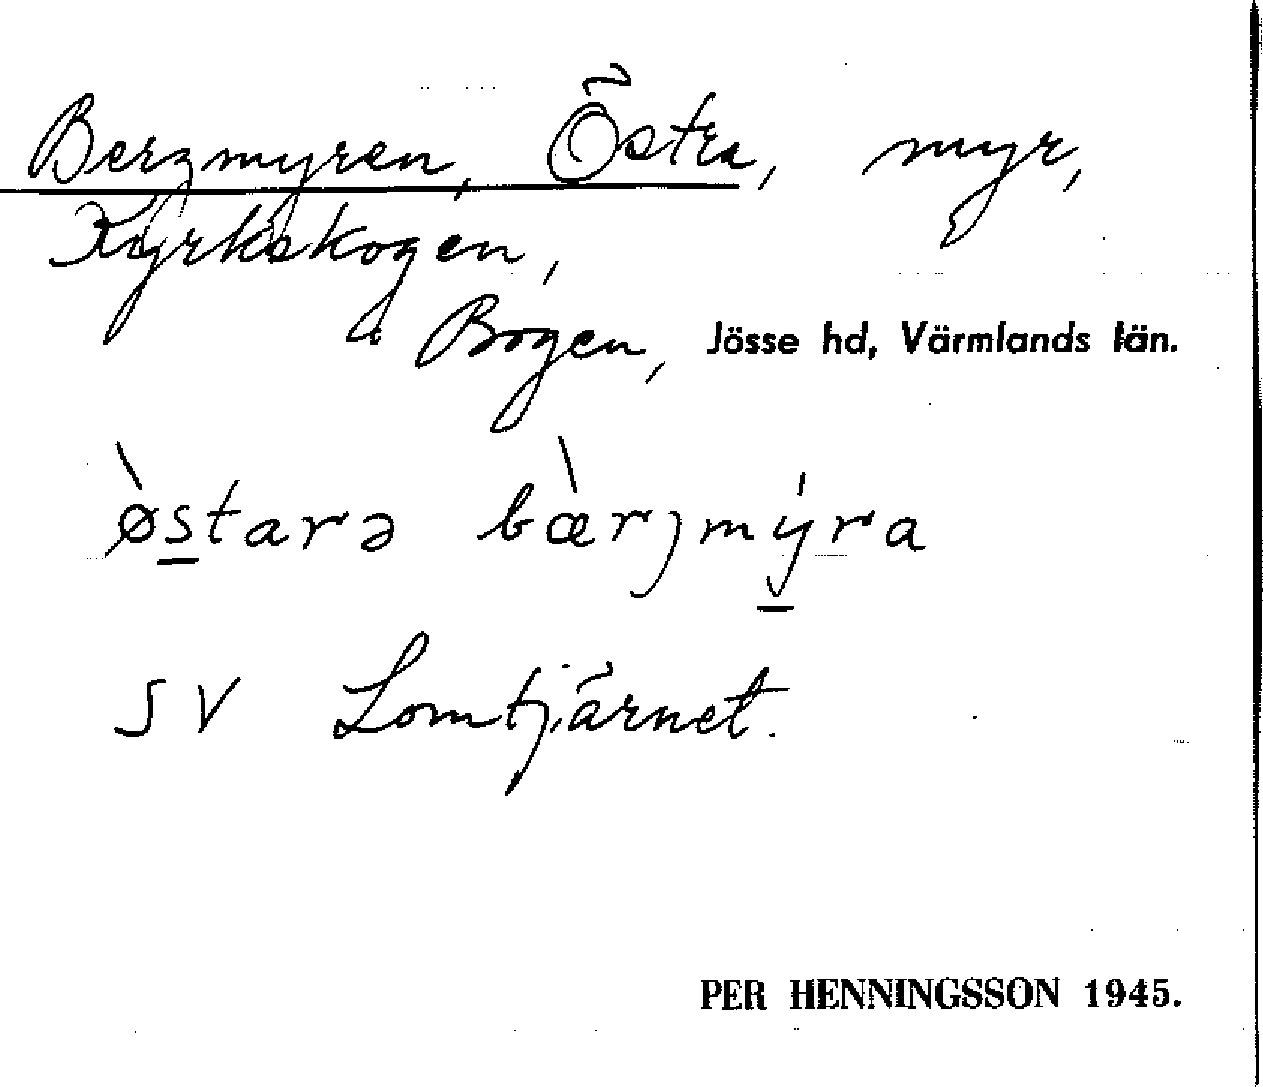 Bergmyren, Östra, myr,
Kyrkskogen,
Bogen, Jösse hd, Värmlands län.
ø̀s̲tarə bæ̀rȷmý̲ra
SV Lomtjärnet.
PER HENNINGSSON 1945.